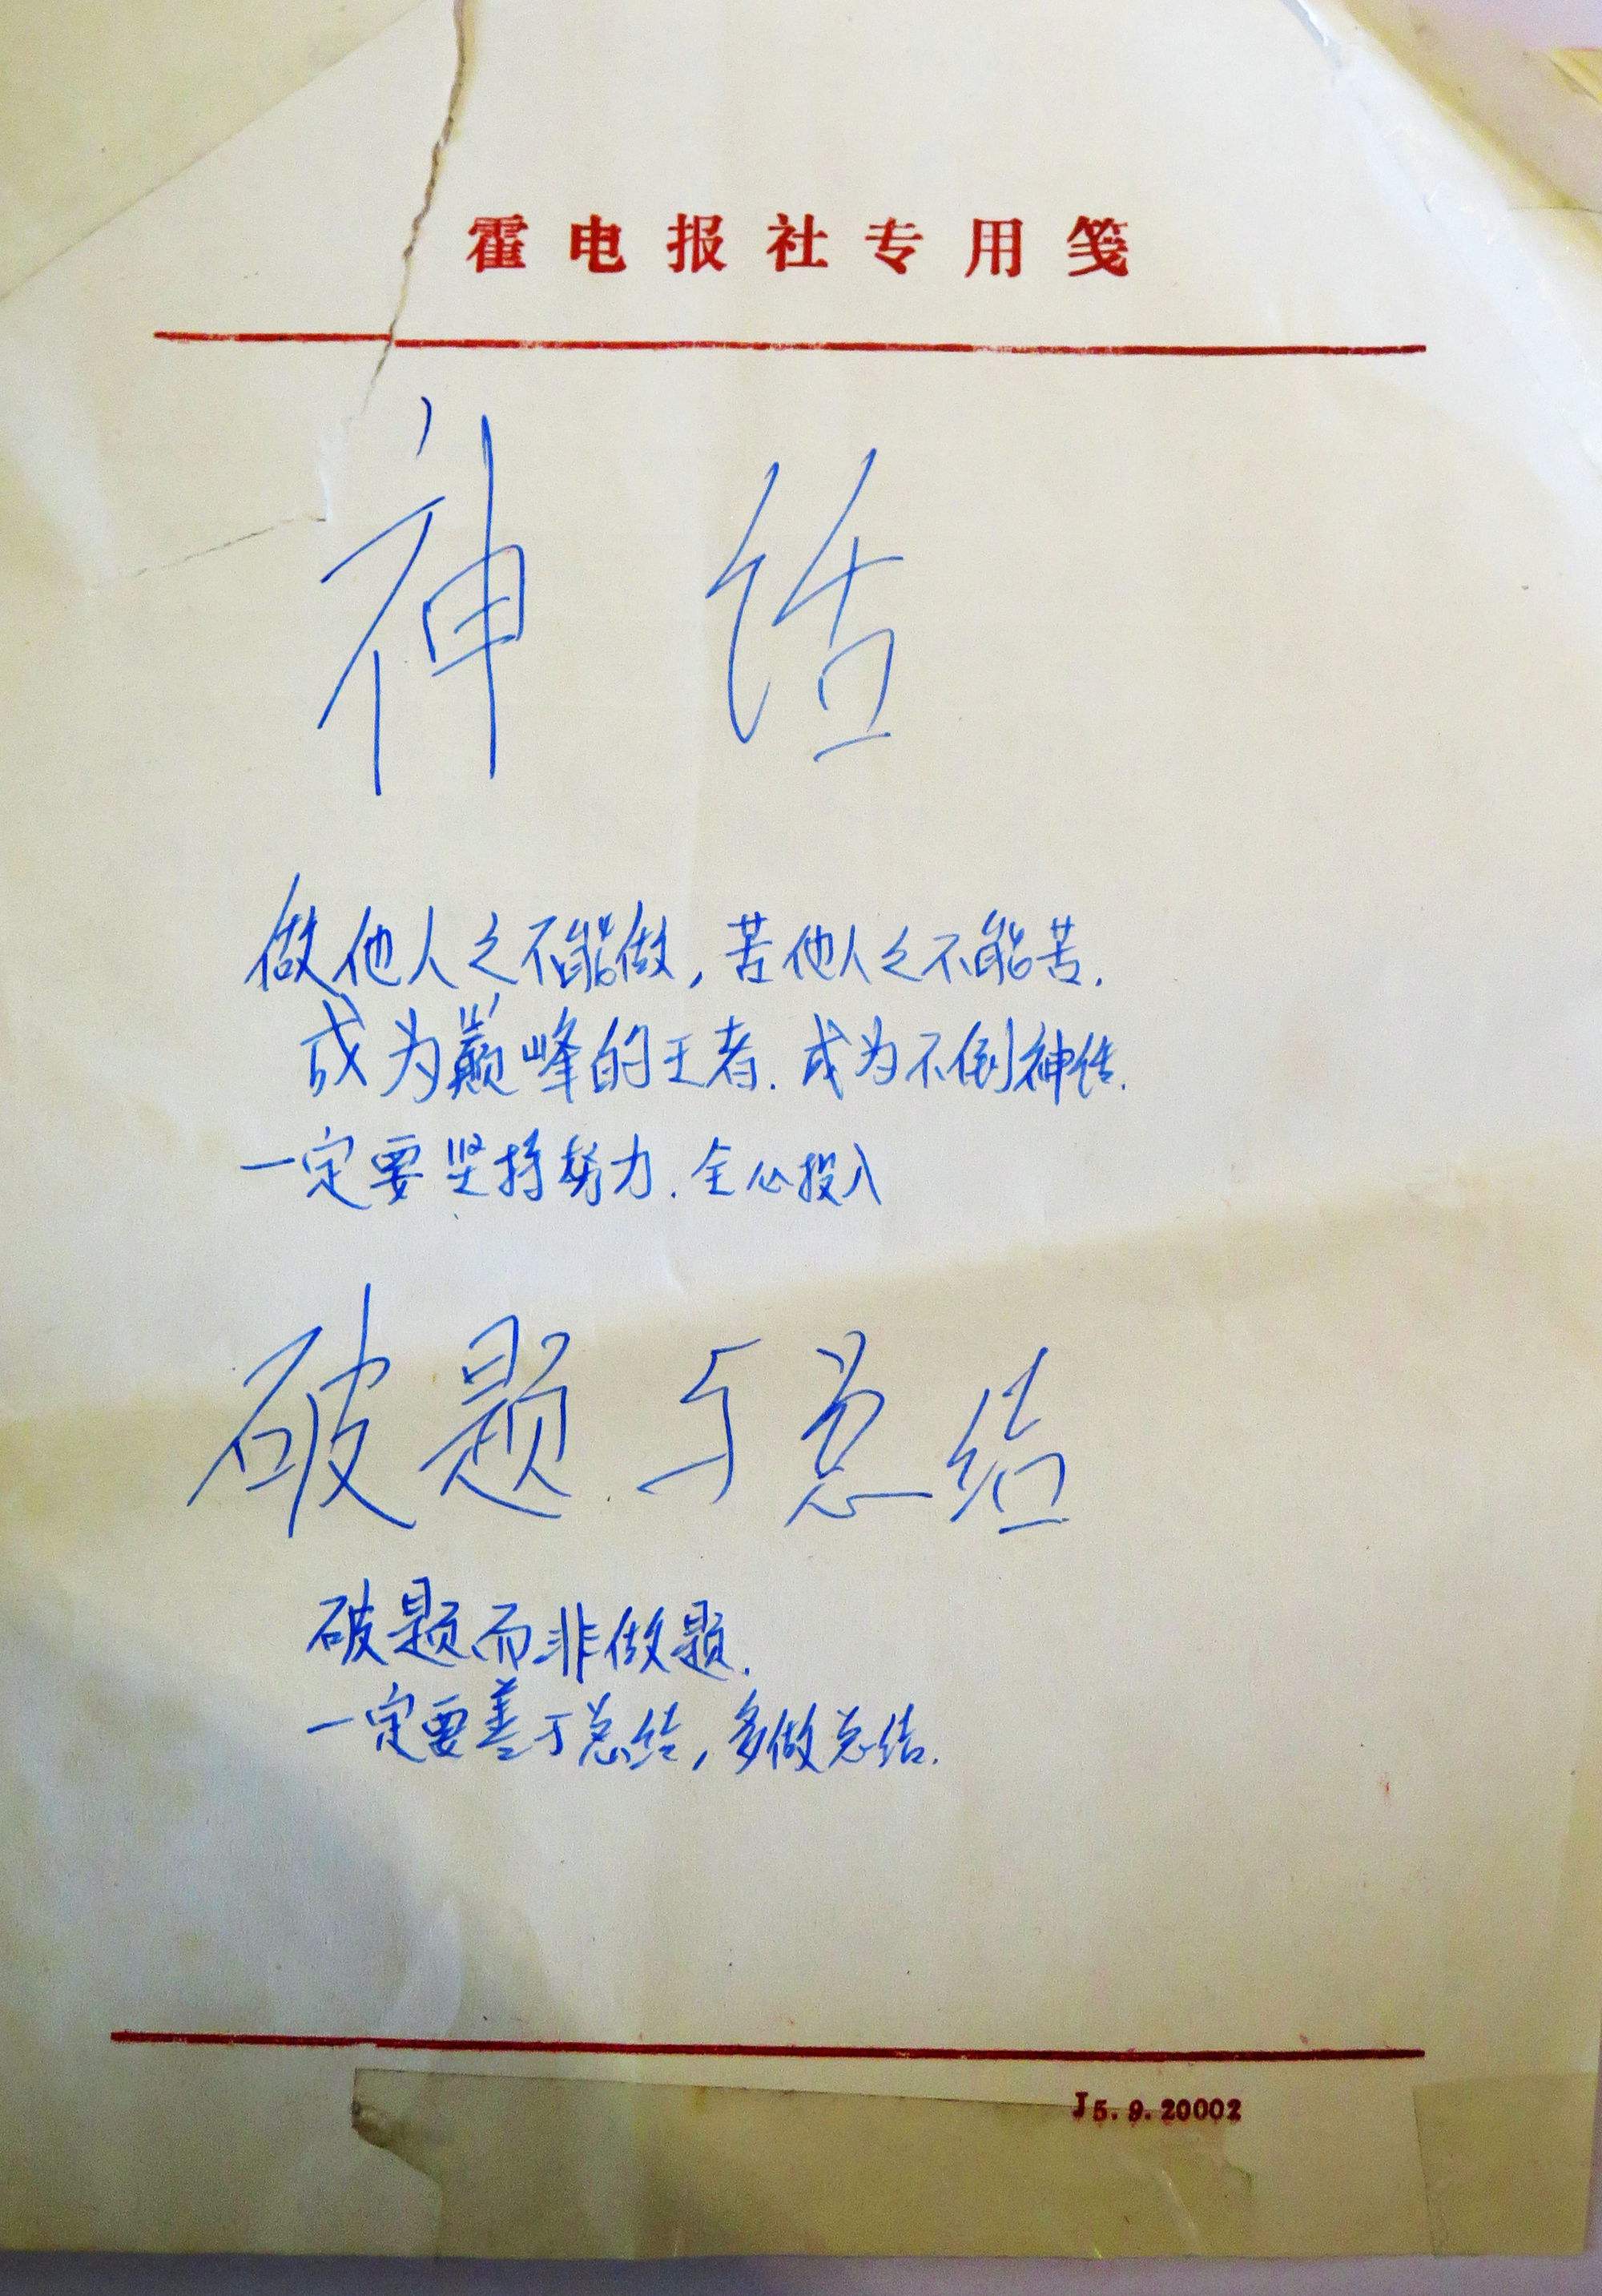 霍电报社专用笺
神话
做他人之不能做，苦他人之不能苦.
成为巅峰的王者.成为不倒神话.
一定要坚持努力.全心投入
破题与总结
破题而非做题.
一定要善于总结，多做总结.
J5.9.20002